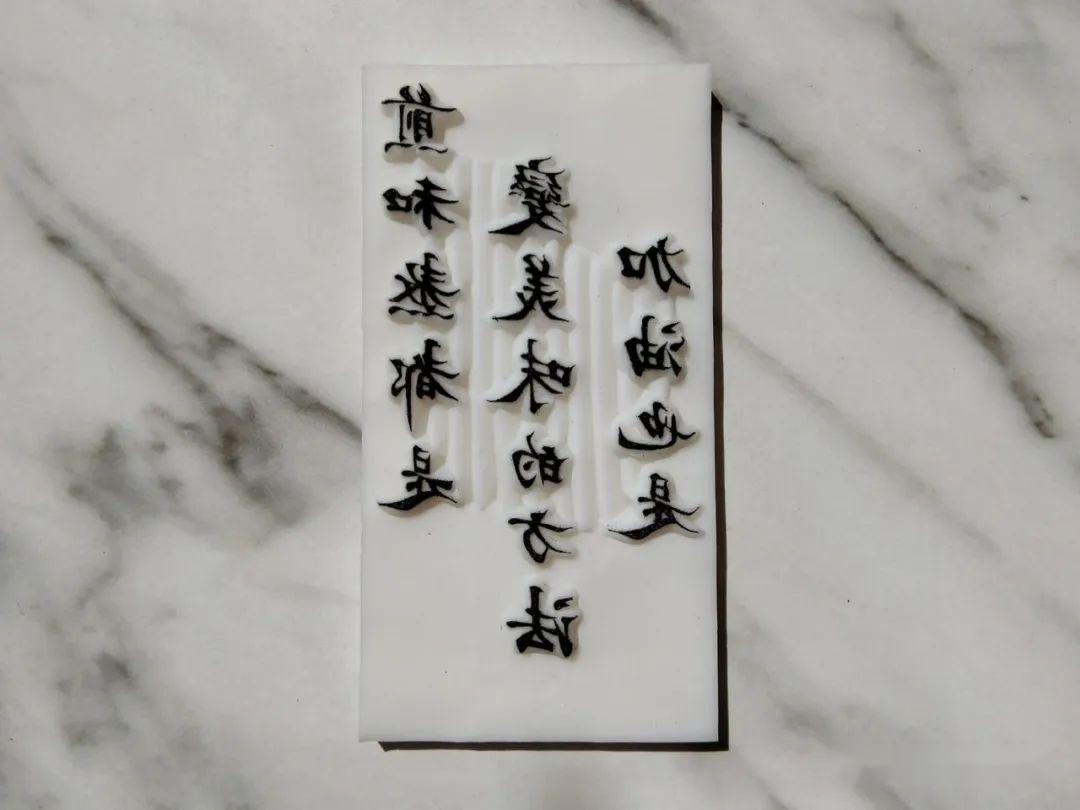 煎和熬都是
變美味的方法
加油也是